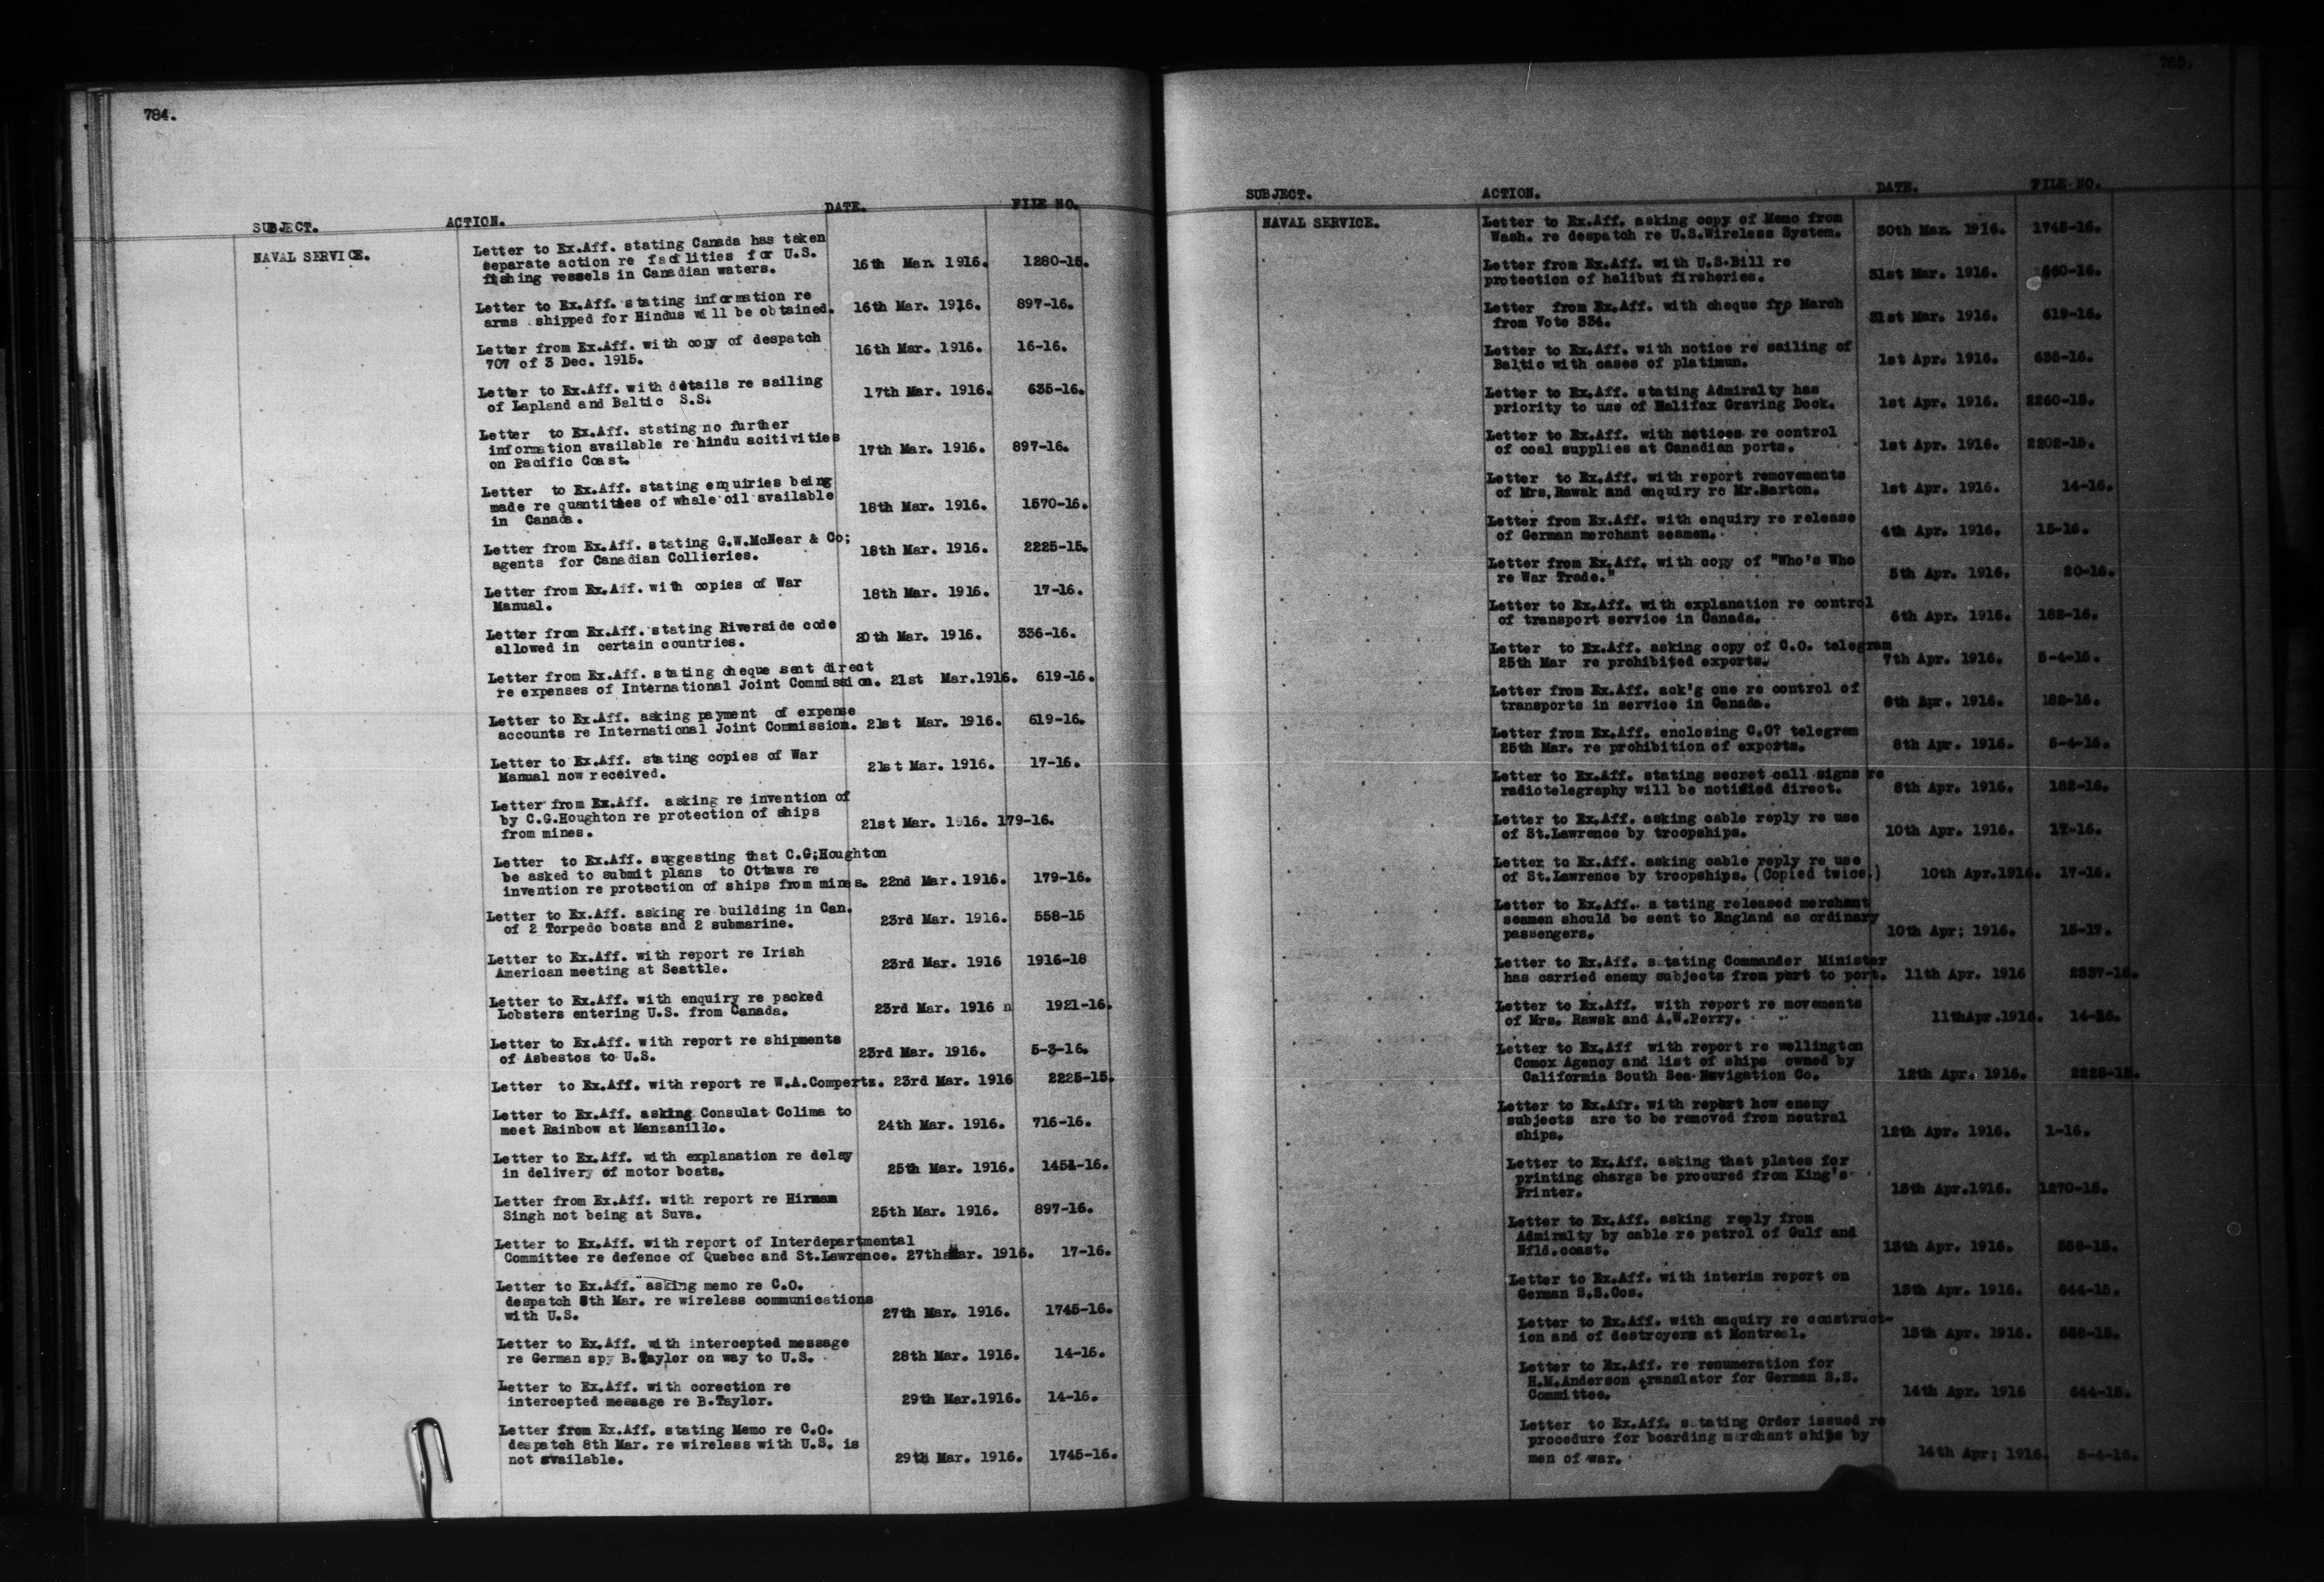 784.
SUBJECT. ACTION. DATE. FILE NO.
NAVAL SERVICE.
Letter to Ex.Aff. stating Canada has taken
separate action re facilities for U.S.
fishing vessels in Canadian waters. 16th Mar. 1916. 1280-15.
Letter to Ex.Aff. stating information re
arms shipped for Hindus will be obtained. 16th Mar. 1916. 897-16.
Letter from Ex.Aff. with copy of despatch
707 of 3 Dec. 1915. 16th Mar. 1916. 16-16.
Letter to Ex.Aff. with details re sailing
of Lapland and Baltic S.S. 17th Mar. 1916. 635-16.
Letter to Ex.Aff. stating no further
information available re hindu acitivities
on Pacific Coast. 17th Mar. 1916. 897-16.
Letter to Ex.Aff. stating enquiries being
made re quantities of whale oil available
in Canada. 18th Mar. 1916. 1570-16.
Letter from Ex.Aff. stating G.W.McNear & Co;
agents for Canadian Collieries. 18th Mar. 1916. 2225-15.
Letter from Ex.Aff. with copies of War
Manual. 18th Mar. 1916. 17-16.
Letter from Ex.Aff. stating Riverside code
allowed in certain countries. 20th Mar. 1916. 336-16.
Letter from Ex.Aff. stating cheque sent direct
re expenses of International Joint Commission. 21st Mar.1916. 619-16.
Letter to Ex.Aff. asking payment of expense
accounts re International Joint Commission. 21st Mar. 1916. 619-16.
Letter to Ex.Aff. stating copies of War
Manual now received. 21st Mar. 1916. 17-16.
Letter from Ex.Aff. asking re invention of
by C.G.Houghton re protection of ships
from mines. 21st Mar. 1916. 179-16.
Letter to Ex.Aff. suggesting that C.G;Houghton
be asked to submit plans to Ottawa re
invention re protection of ships from mines. 22nd Mar. 1916. 179-16.
Letter to Ex.Aff. asking re building in Can.
of 2 Torpedo boats and 2 submarine. 23rd Mar. 1916. 558-15
Letter to Ex.Aff. with report re Irish
American meeting at Seattle. 23rd Mar. 1916 1916-18
Letter to Ex.Aff. with enquiry re packed
Lobsters entering U.S. from Canada. 23rd Mar. 1916 n 1921-16.
Letter to Ex.Aff. with report re shipments
of Asbestos to U.S. 23rd Mar. 1916. 5-3-16.
Letter to Ex.Aff. with report re W.A.Compertz. 23rd Mar. 1916 2225-15.
Letter to Ex.Aff. asking Consulat Colima to
meet Rainbow at Manzanillo. 24th Mar. 1916. 716-16.
Letter to Ex.Aff. with explanation re delay
in delivery of motor boats. 25th Mar. 1916. 1454-16.
Letter from Ex.Aff. with report re Hirmam
Singh not being at Suva. 25th Mar. 1916. 897-16.
Letter to Ex.Aff. with report of Interdepartmental
Committee re defence of Quebec and St.Lawrence. 27th Mar. 1916. 17-16.
Letter to Ex.Aff. asking memo re C.O.
despatch 8th Mar. re wireless communications
with U.S. 27th Mar. 1916. 1745-16.
Letter to Ex.Aff. with intercepted message
re German spy B.Taylor on way to U.S. 28th Mar. 1916. 14-16.
Letter to Ex.Aff. with corection re
intercepted message re B.Taylor. 29th Mar.1916. 14-16.
Letter from Ex.Aff. stating Memo re C.O.
despatch 8th Mar. re wireless with U.S. is
not available. 29th Mar. 1916. 1745-16.
785.
SUBJECT. ACTION. DATE. FILE NO.
NAVAL SERVICE.
Letter to Ex.Aff. asking copy of Memo from
Wash. re despatch re U.S.Wireless System. 30th Mar. 1916. 1745-16.
Letter from Ex.Aff. with U.S.Bill re
protection of halibut firsheries. 31st Mar. 1916. 660-16.
Letter from Ex.Aff. with cheque frp March
from Vote 334. 31st Mar. 1916. 619-16.
Letter to Ex.Aff. with notice re sailing of
Baltic with cases of platimun. 1st Apr. 1916. 635-16.
Letter to Ex.Aff. stating Admiralty has
priority to use of Halifax Graving Dock. 1st Apr. 1916. 2260-15.
Letter to Ex.Aff. with notices re control
of coal supplies at Canadian ports. 1st Apr. 1916. 2202-15.
Letter to Ex.Aff. with report removements
of Mrs.Rawak and enquiry re Mr.Barton. 1st Apr. 1916. 14-16.
Letter from Ex.Aff. with enquiry re release
of German merchant seamen. 4th Apr. 1916. 15-16.
Letter from Ex.Aff. with copy of "Who's Who
re War Trade." 5th Apr. 1916. 20-16.
Letter to Ex.Aff. with explanation re control
of transport service in Canada. 6th Apr. 1916. 182-16.
Letter to Ex.Aff. asking copy of C.O. telegram
25th Mar re prohibited exports. 7th Apr. 1916. 5-4-16.
Letter from Ex.Aff. ack'g one re control of
transports in service in Canada. 8th Apr. 1916. 182-16.
Letter from Ex.Aff. enclosing C.O? telegram
25th Mar. re prohibition of exports. 8th Apr. 1916. 5-4-16.
Letter to Ex.Aff. stating secret call signs re
radiotelegraphy will be notified direct. 8th Apr. 1916. 182-16.
Letter to Ex.Aff. asking cable reply re use
of St.Lawrence by troopships. 10th Apr. 1916. 17-16.
Letter to Ex.Aff. asking cable reply re use
of St.Lawrence by troopships.(Copied twice.) 10th Apr.1916. 17-16.
Letter to Ex.Aff. stating released merchant
seamen should be sent to England as ordinary
passengers. 10th Apr; 1916. 15-17.
Letter to Ex.Aff. stating Commander Minister
has carried enemy subjects from port to port. 11th Apr. 1916 2337-16.
Letter to Ex.Aff. with report re movements
of Mrs. Rawak and A.W.Perry. 11thApr.1916. 14-16.
Letter to Ex.Aff with report re wellington
Comox Agency and list of ships owned by
California South Sea Navigation Co. 12th Apr. 1916. 2225-15.
Letter to Ex.Afr. with report how enemy
subjects are to be removed from neutral
ships. 12th Apr. 1916. 1-16.
Letter to Ex.Aff. asking that plates for
printing chargs be procured from King's
Printer. 13th Apr.1916. 1270-15.
Letter to Ex.Aff. asking reply from
Admiralty by cable re patrol of Gulf and
Nfld.coast. 13th Apr. 1916. 558-15.
Letter to Ex.Aff. with interim report on
German S.S.Cos. 13th Apr. 1916. 644-15.
Letter to Ex.Aff. with enquiry re construct-
ion and of destroyers at Montreal. 13th Apr. 1916. 558-15.
Letter to Ex.Aff. re renumeration for
H.M.Anderson translator for German S.S.
Committee. 14th Apr. 1916 644-15.
Letter to Ex.Aff. stating Order issued re
procedure for boarding merchant ships by
men of war. 14th Apr; 1916. 5-4-16.